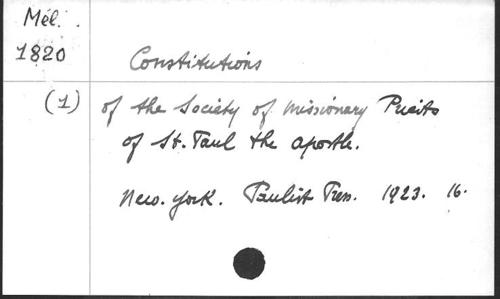 Mél.
1820
Constitutions
(1) of the Society of Missionary Priests
of St. Paul the Apostle.
New. York. Paulist Press. 1923. 16.